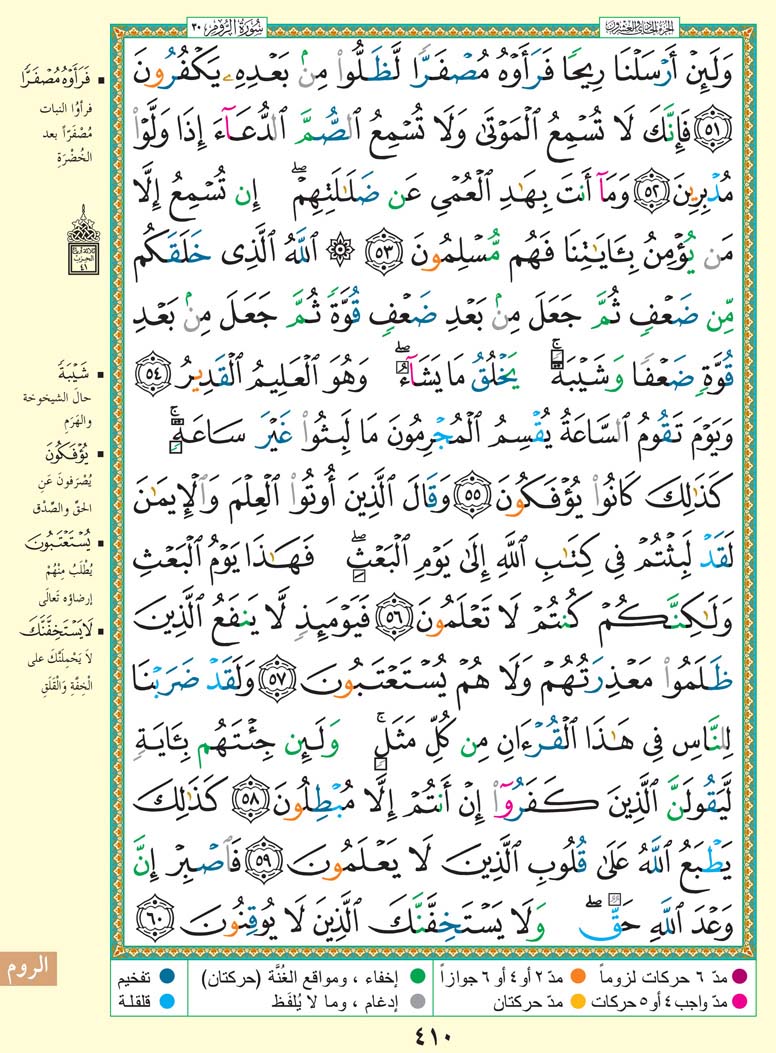 الجزء الحادي والعشرون
سُورَةُ الرُّومِ ٣٠
وَلَئِنْ أَرْسَلْنَا رِيحًا فَرَأَوْهُ مُصْفَرًّا لَّظَلُّوا۟ مِنۢ بَعْدِهِۦ يَكْفُرُونَ
٥١ فَإِنَّكَ لَا تُسْمِعُ ٱلْمَوْتَىٰ وَلَا تُسْمِعُ ٱلصُّمَّ ٱلدُّعَآءَ إِذَا وَلَّوْا۟
مُدْبِرِينَ ٥٢ وَمَآ أَنتَ بِهَٰدِ ٱلْعُمْىِ عَن ضَلَٰلَتِهِمْ ۖ إِن تُسْمِعُ إِلَّا
مَن يُؤْمِنُ بِـَٔايَٰتِنَا فَهُم مُّسْلِمُونَ ٥٣ ۞ ٱللَّهُ ٱلَّذِى خَلَقَكُم
مِّن ضَعْفٍ ثُمَّ جَعَلَ مِنۢ بَعْدِ ضَعْفٍ قُوَّةً ثُمَّ جَعَلَ مِنۢ بَعْدِ
قُوَّةٍ ضَعْفًا وَشَيْبَةً ۚ يَخْلُقُ مَا يَشَآءُ ۖ وَهُوَ ٱلْعَلِيمُ ٱلْقَدِيرُ ٥٤
وَيَوْمَ تَقُومُ ٱلسَّاعَةُ يُقْسِمُ ٱلْمُجْرِمُونَ مَا لَبِثُوا۟ غَيْرَ سَاعَةٍ ۚ
كَذَٰلِكَ كَانُوا۟ يُؤْفَكُونَ ٥٥ وَقَالَ ٱلَّذِينَ أُوتُوا۟ ٱلْعِلْمَ وَٱلْإِيمَٰنَ
لَقَدْ لَبِثْتُمْ فِى كِتَٰبِ ٱللَّهِ إِلَىٰ يَوْمِ ٱلْبَعْثِ ۖ فَهَٰذَا يَوْمُ ٱلْبَعْثِ
وَلَٰكِنَّكُمْ كُنتُمْ لَا تَعْلَمُونَ ٥٦ فَيَوْمَئِذٍ لَّا يَنفَعُ ٱلَّذِينَ
ظَلَمُوا۟ مَعْذِرَتُهُمْ وَلَا هُمْ يُسْتَعْتَبُونَ ٥٧ وَلَقَدْ ضَرَبْنَا
لِلنَّاسِ فِى هَٰذَا ٱلْقُرْءَانِ مِن كُلِّ مَثَلٍ ۚ وَلَئِن جِئْتَهُم بِـَٔايَةٍ
لَّيَقُولَنَّ ٱلَّذِينَ كَفَرُوٓا۟ إِنْ أَنتُمْ إِلَّا مُبْطِلُونَ ٥٨ كَذَٰلِكَ
يَطْبَعُ ٱللَّهُ عَلَىٰ قُلُوبِ ٱلَّذِينَ لَا يَعْلَمُونَ ٥٩ فَٱصْبِرْ إِنَّ
وَعْدَ ٱللَّهِ حَقٌّ ۖ وَلَا يَسْتَخِفَّنَّكَ ٱلَّذِينَ لَا يُوقِنُونَ ٦٠
فَرَأَوْهُ مُصْفَرًّا
فرأوا النبات
مُصْفَرّاً بعد
الخُضْرَةِ
ثلاثة أرباع
الحزب
٤١
شَيْبَةً
حالَ الشيخوخة
والهَرَمِ
يُؤْفَكُونَ
يُصْرَفونَ عَنِ
الحقِّ والصِّدْق
يُسْتَعْتَبُونَ
يُطْلَبُ مِنْهُمْ
إرضاؤه تَعالَى
لَا يَسْتَخِفَّنَّكَ
لاَ يَحْمِلَنَّكَ على
الخِفَّةِ وَالْقَلَقِ
الروم
مدّ ٦ حركات لزوماً
مدّ ٢ أو ٤ أو ٦ جوازاً
إخفاء ، ومواقع الغُنَّة (حركتان)
تفخيم
مدّ واجب ٤ أو ٥ حركات
مدّ حركتان
إدغام ، وما لا يُلفَظ
قلقلة
٤١٠